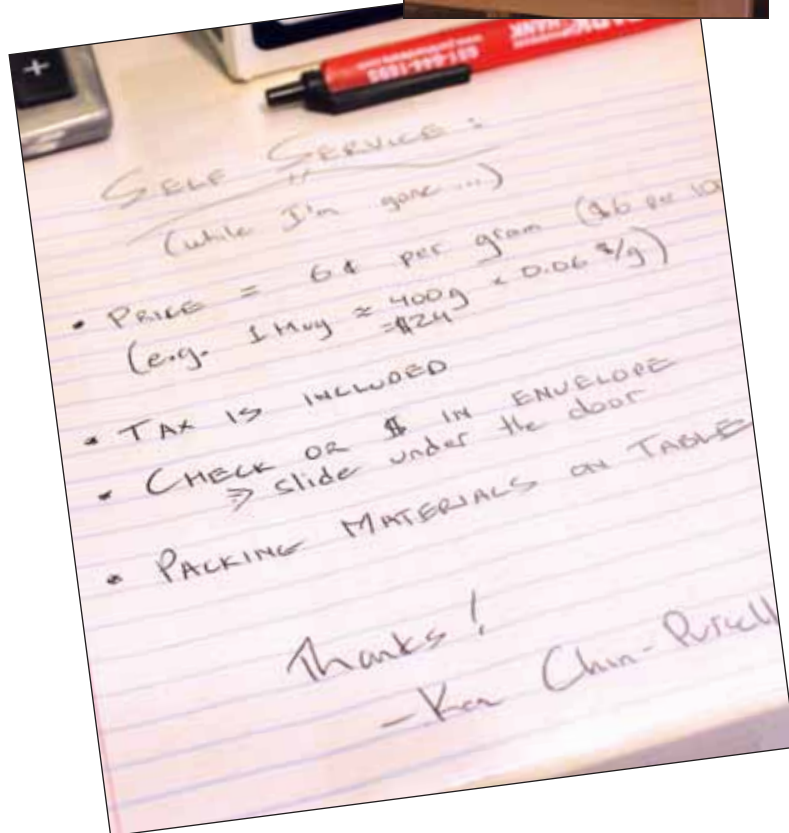 SELF SERVICE:
(while I'm gone...)
• PRICE = 6¢ per gram ($6 per 10
(e.g. 1 Mug ≈ 400g × 0.06 $/g)
=$24
• TAX IS INCLUDED
• CHECK OR $ IN ENVELOPE
⇒ slide under the door
• PACKING MATERIALS ON TABLE
Thanks!
-Ken Chin-Purcell